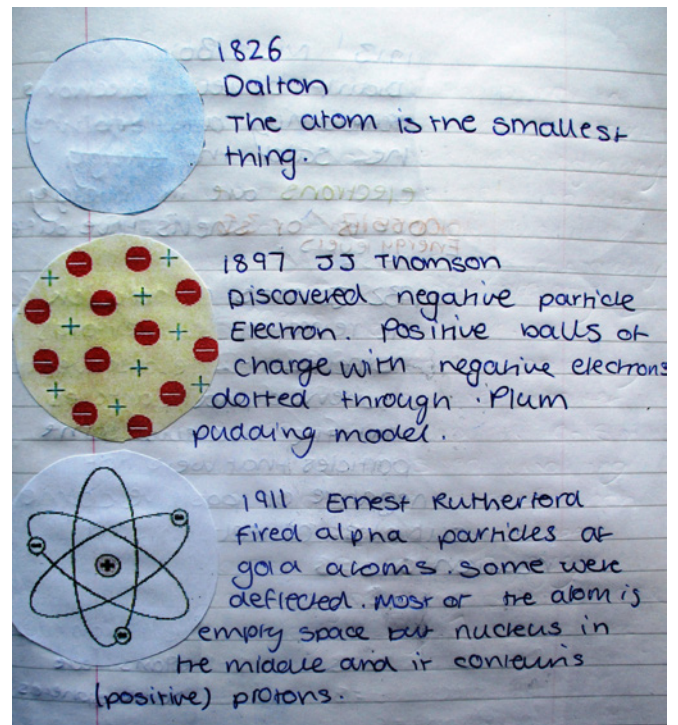 1826
Dalton
The atom is the smallest
thing.
1897 JJ Thomson
Discovered negative particle
Electron. Positive balls of
charge with negative electrons
dotted through. Plum
pudding model.
1911 Ernest Rutherford
fired alpha particles at
gold atoms. some were
deflected. Most of the atom is
empty space but nucleus in
the middle and it contains
(positive) protons.